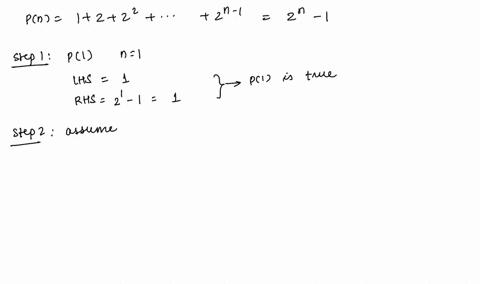 P(n) = 1 + 2 + 2² + ··· + 2ⁿ⁻¹ = 2ⁿ - 1
Step 1: P(1) n=1
LHS = 1
RHS = 2¹ - 1 = 1 } → P(1) is true
Step 2: assume